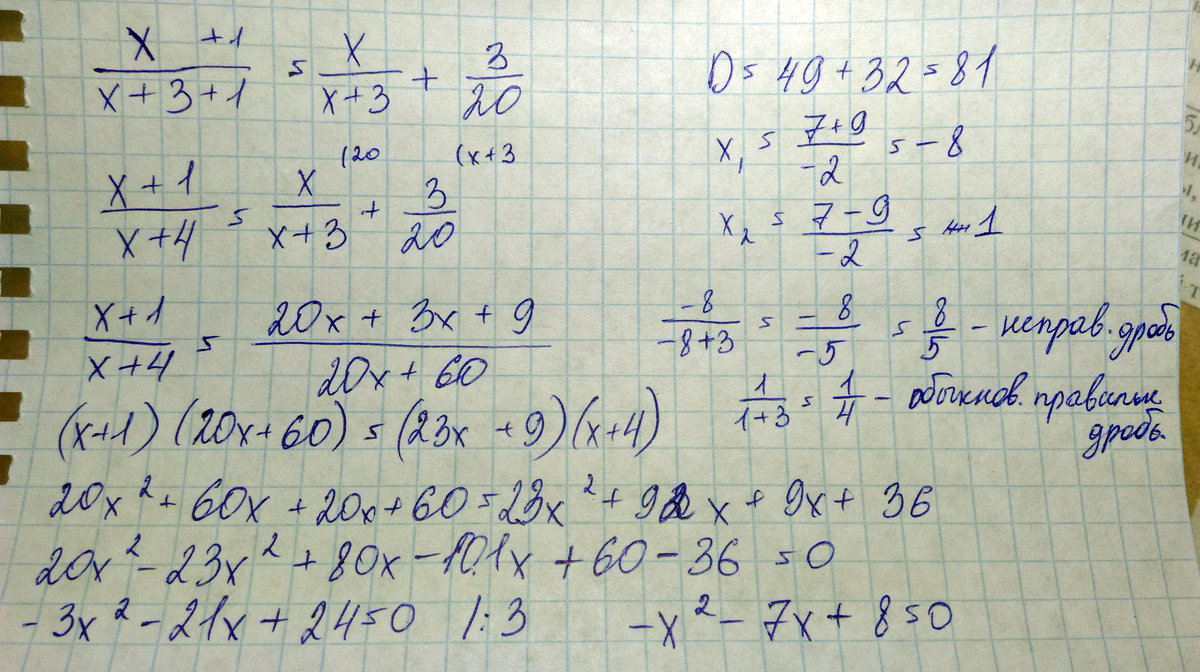 x +1 / x+3+1 = x / x+3 + 3 / 20
(20 (x+3
x+1 / x+4 = x / x+3 + 3 / 20
x+1 / x+4 = 20x + 3x + 9 / 20x + 60
(x+1) (20x+60) = (23x +9)(x+4)
20x² + 60x + 20x + 60 = 23x² + 92x + 9x + 36
20x² - 23x² + 80x - 101x + 60 - 36 = 0
-3x² - 21x + 24 = 0 |:3 -x² - 7x + 8 = 0
D = 49 + 32 = 81
x₁ = 7+9 / -2 = -8
x₂ = 7-9 / -2 = 1
-8 / -8+3 = -8 / -5 = 8 / 5 - неправ. дробь
1 / 1+3 = 1 / 4 - обыкнов. правильн.
дробь.